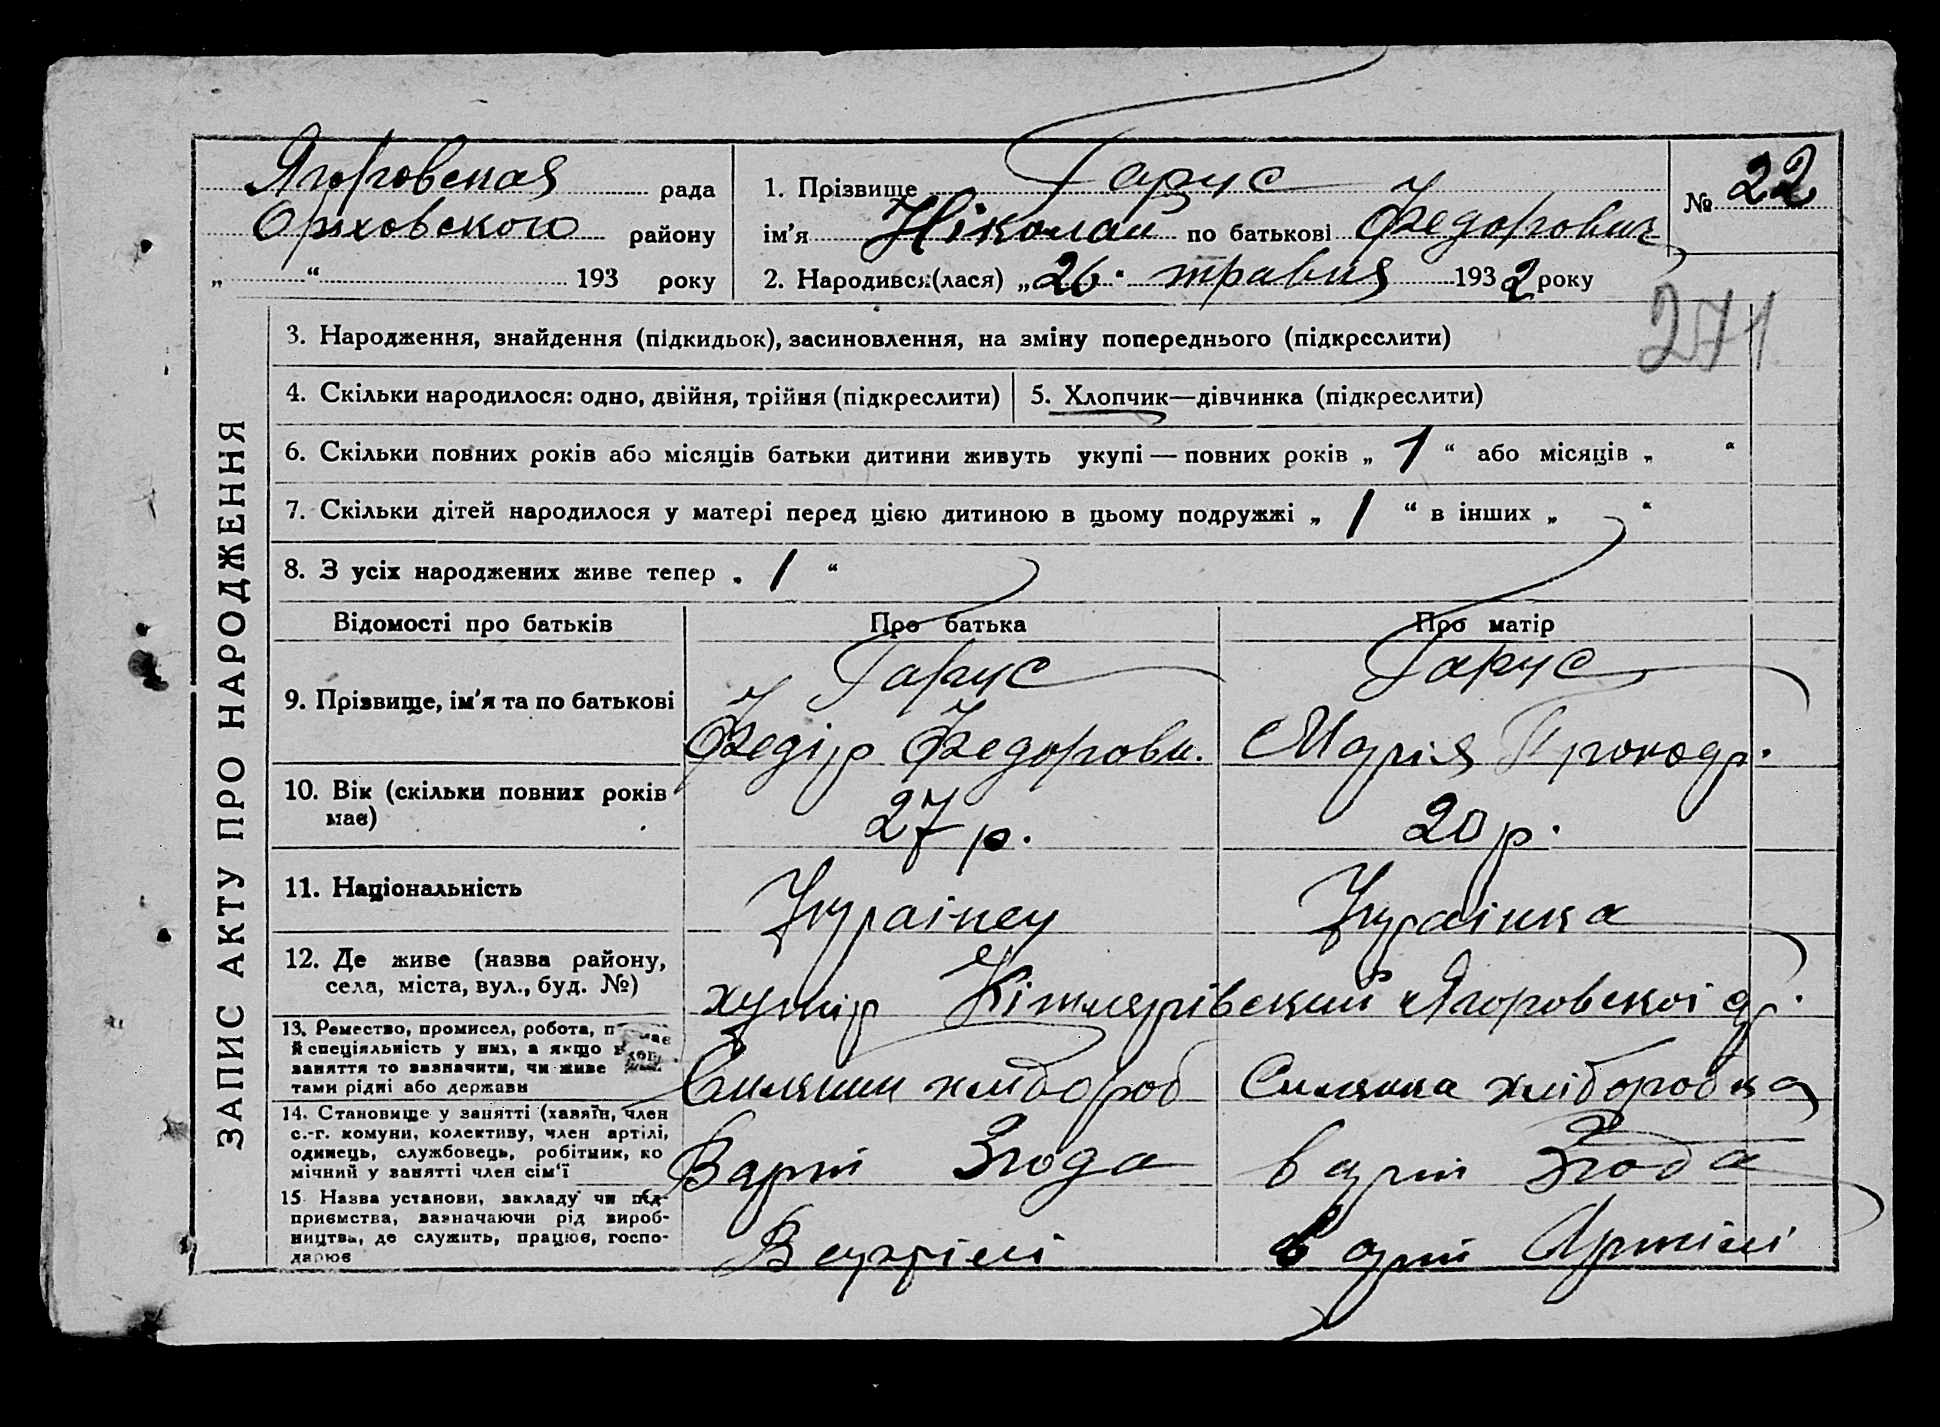 Ягоровская рада
Оріховского району
„ “ 193 року
1. Прізвище Гарус
ім'я Ніколай по батькові Федорович
2. Народився(лася) „26“ травня 1932 року
№ 22
271
ЗАПИС АКТУ ПРО НАРОДЖЕННЯ
3. Народження, знайдення (підкидьок), засиновлення, на зміну попереднього (підкреслити)
4. Скільки народилося: одно, двійня, трійня (підкреслити) 5. Хлопчик—дівчинка (підкреслити)
6. Скільки повних років або місяців батьки дитини живуть укупі — повних років „ 1 “ або місяців „ “
7. Скільки дітей народилося у матері перед цією дитиною в цьому подружжі „ 1 “ в інших „ “
8. З усіх народжених живе тепер „ 1 “
Відомості про батьків Про батька Про матір
9. Прізвище, ім'я та по батькові
Гарус
Федір Федорови.
Гарус
Марія
10. Вік (скільки повних років
має)
27 р.
20 р.
11. Національність
Українец
Українка
12. Де живе (назва району,
села, міста, вул., буд. №)
хутір
13. Ремество, промисел, робота, п має
й спеціяльність у них, а якщо
заняття то зазначити, чи живе
тами рідні або держави
Силянин хлібороб
Силянка хліборобка
14. Становище у занятті (хазяїн, член
с.-г. комуни, колективу, член артілі,
одинець, службовець, робітник, по
мічний у занятті член сім'ї
В арті Згода
в арті Згода
15. Назва установи, закладу чи під-
приємства, зазначаючи рід вироб-
ництва, де служить, працює, госпо-
дарює
В артілі
в арті Артілі